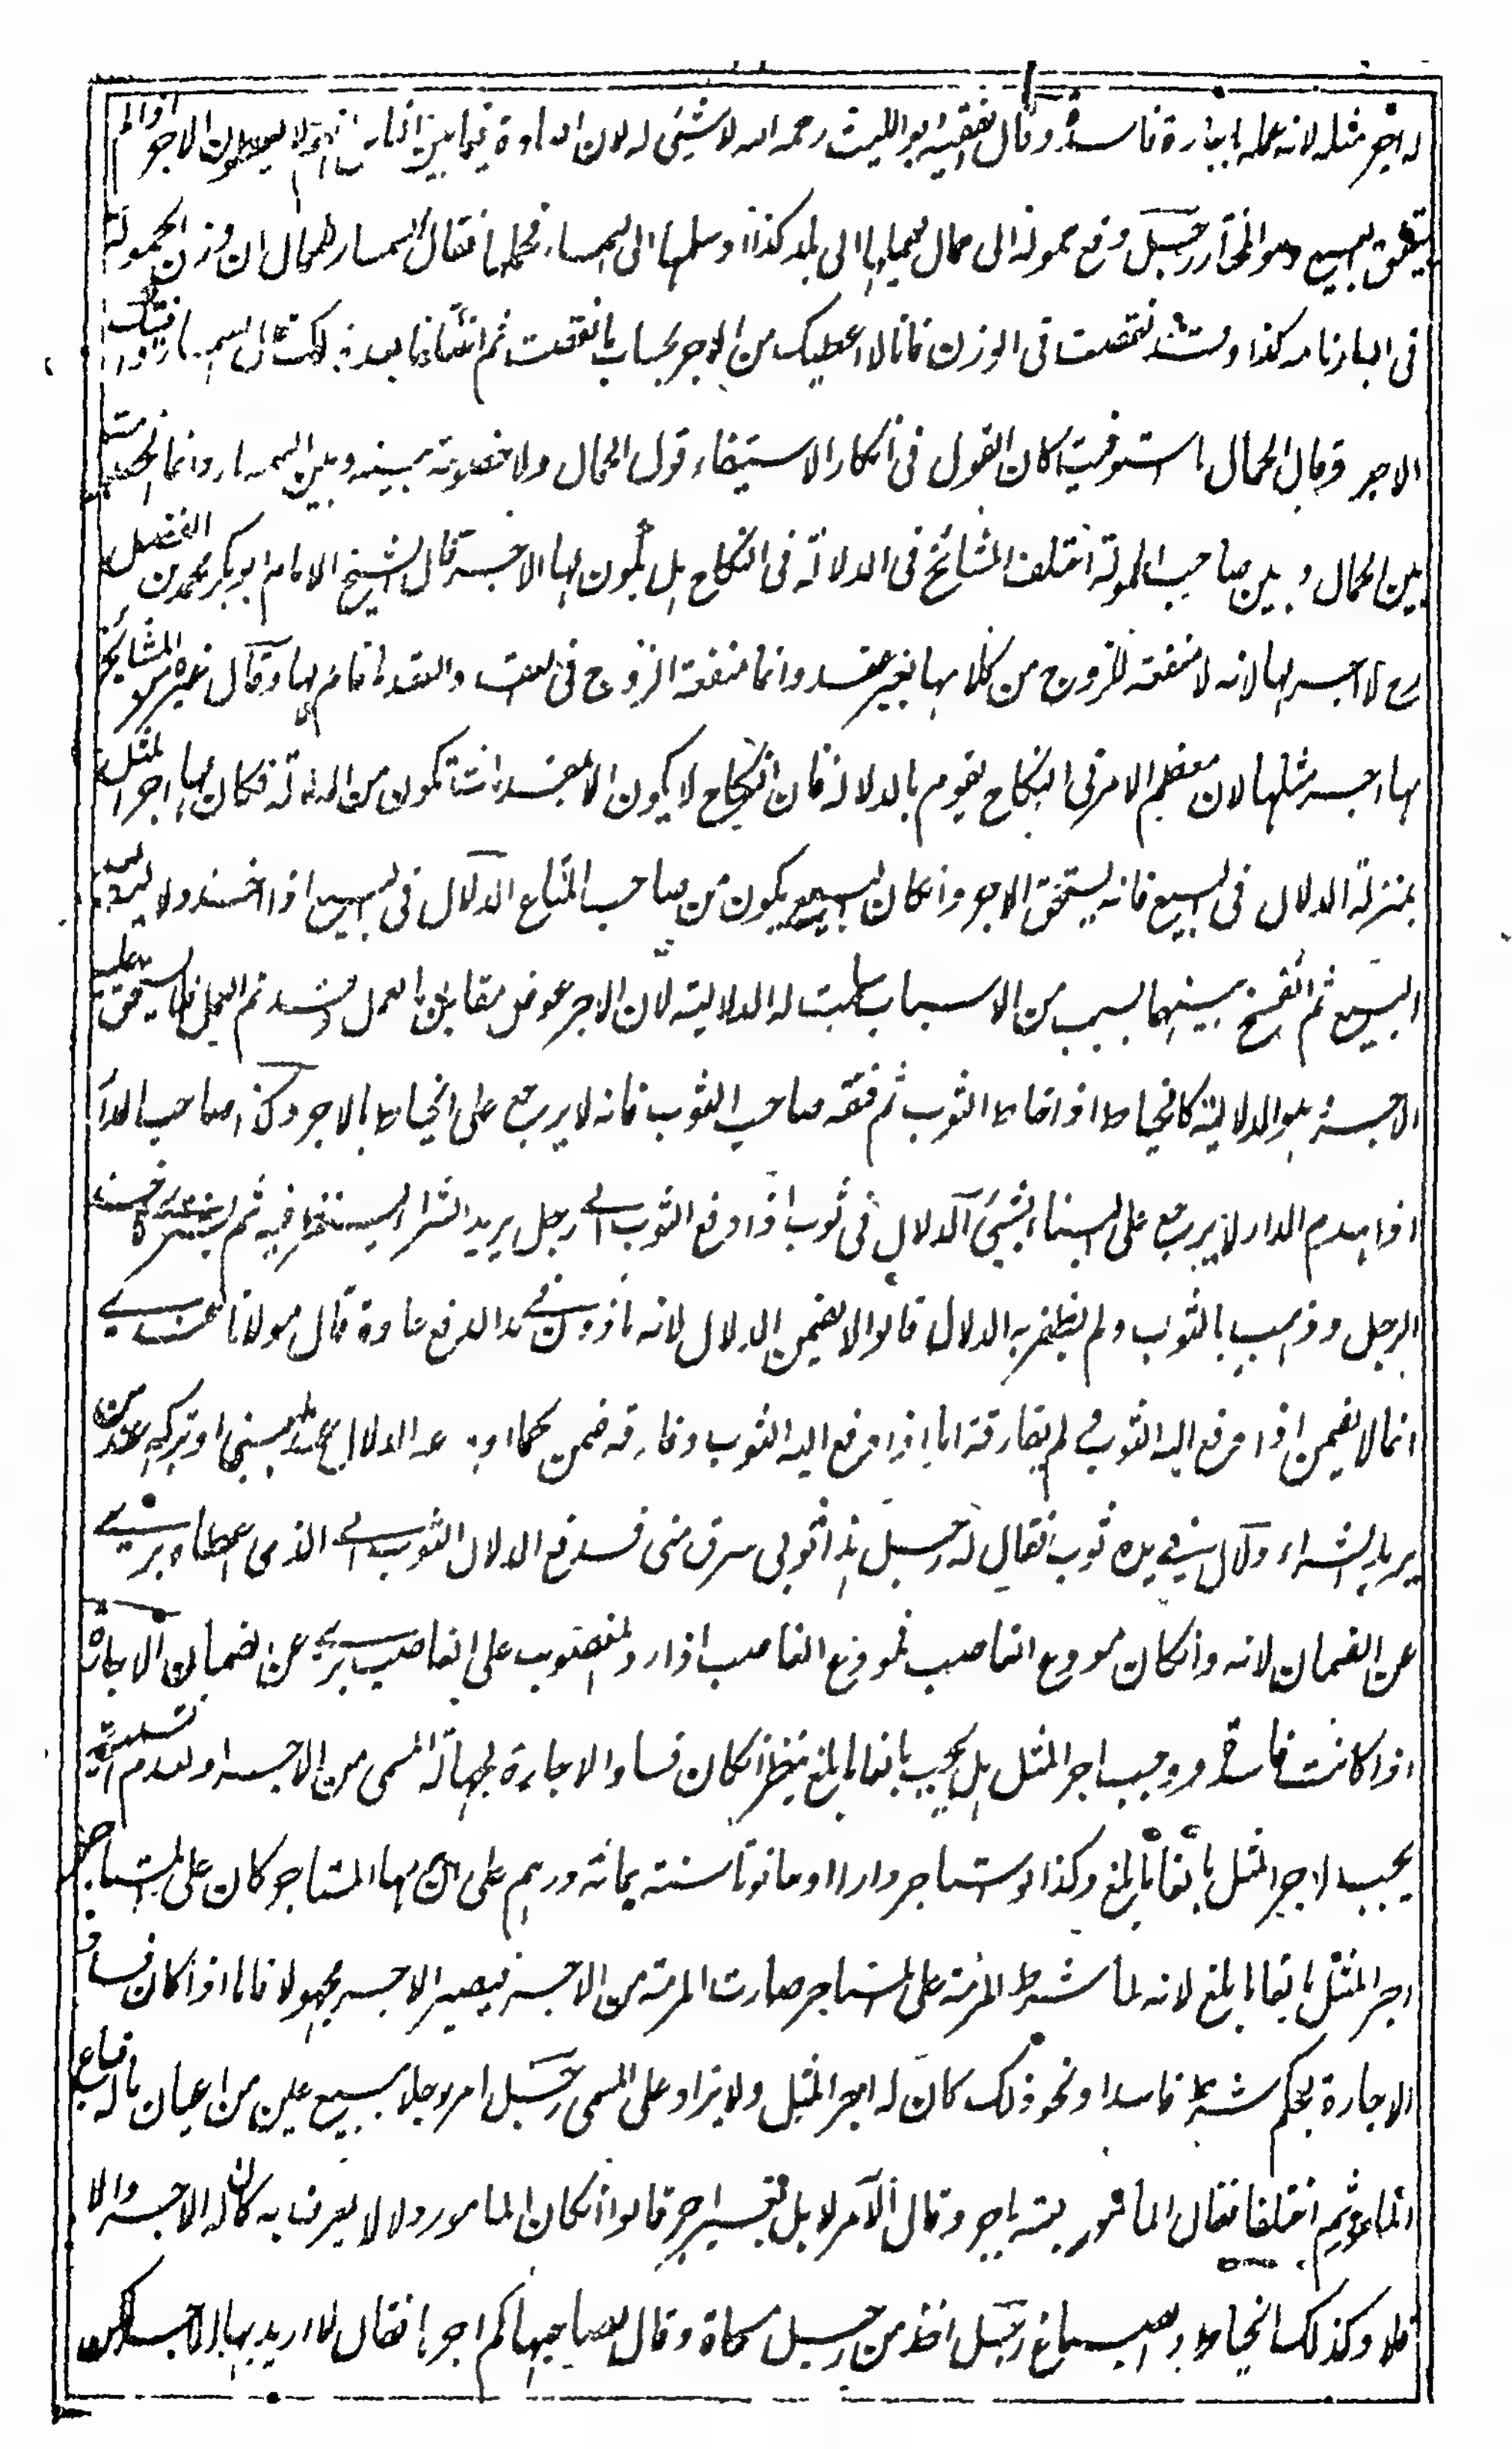 له اجر مثله لانه عمله باجارة فاسدة وقال الفقيه ابو الليث رحمه الله لا شيئ له لان العادة فيما بين الناس انهم لا يعطون الاجر اذا لم
يتفق البيع وهو المختار رجل دفع حمولة الى حمال ليحملها الى بلد كذا وسلمها الى السمسار فحملها فقال السمسار للحمال ان وزن الحمولة
فى البارنامه كذا وقد نقصت فى الوزن فانا لا اعطيك من الاجر بحساب ما نقصت ثم اختلفا بعد ذلك فقال السمسار اوفيتك
الاجر وقال الحمال ما استوفيت كان القول فى انكار الاستيفاء قول الحمال ولا خصومة بينه وبين السمسار وانما الخصومة
بين الحمال وبين صاحب الحمولة اختلف المشائخ فى الدلالة فى النكاح هل يكون لها الاجر قال الشيخ الامام ابو بكر محمد بن الفضل
رح لا اجر لها لانه لا منفعة للزوج من كلامها بغير عقد وانما منفعة الزوج فى العقد والعقد ما قام بها وقال غيره من المشائخ
لها اجر مثلها لان معظم الامر فى النكاح يقوم بالدلالة فان النكاح لا يكون الا بمقدمات تكون من الدلالة فكان لها اجر المثل
بمنزلة الدلال فى البيع فانه يستحق الاجر وان كان البيع يكون من صاحب المتاع الدلال فى البيع اذا اخذ دلالية
البيع ثم انفسخ بينهما بسبب من الاسباب سلمت له الدلالية لان الاجر عوض مقابل العمل وقد تم العمل فلا يستحق عليه
الاجر هو الدلالية كالخياط اذا خاط الثوب ثم فتقه صاحب الثوب فانه لا يرجع على الخياط بالاجر وكذا صاحب الدار
اذا هدم الدار لا يرجع على البناء بشيئ الدلال فى ثوب اذا دفع الثوب الى رجل يريد الشراء لينظر فيه ثم يشتريه فاخذه
الرجل وذهب بالثوب ولم يظفر به الدلال قالوا لا يضمن الدلال لانه ماذون فى هذا الدفع عادة قال مولانا عندى
انما لا يضمن اذا دفع اليه الثوب ولم يفارقه اما اذا دفع اليه الثوب وفارقه ضمن كما اودعه الدلال عند اجنبى او تركه عند من
يريد الشراء دلال فى يده ثوب فقال له رجل هذا ثوبى سرق منى فدفع الدلال الثوب الى الذى اعطاه برئ
عن الضمان لانه وان كان مودع الغاصب فمودع الغاصب اذا رد المغصوب على الغاصب يبرئ عن الضمان الاجارة
اذا كانت فاسدة ووجب اجر المثل هل يجب بالغا ما بلغ ينظر ان كان فساد الاجارة لجهالة المسمى من الاجر او لعدم التسمية
يجب اجر المثل بالغا ما بلغ وكذا لو استاجر دارا او حانوتا سنة بمائة درهم على ان يرمها المستاجر كان على المستاجر
اجر المثل بالغا ما بلغ لانه لما شرط المرمة على المستاجر صارت المرمة من الاجر فيصير الاجر مجهولا فاما اذا كان فساد
الاجارة بحكم شرط فاسد او نحو ذلك كان له اجر المثل ولا يزاد على المسمى رجل امر رجلا ببيع عين من اعيان ماله فباع
المامور ثم اختلفا فقال المامور بعته باجر وقال الآمر لا بل بغير اجر قالوا ان كان المامور دلالا يعرف به كان له الاجر والا
فلا وكذلك الخياط والصباغ رجل اخذ من رجل مسحاة وقال لصاحبها كم اجرها فقال لا اريد بها الاجر لكن